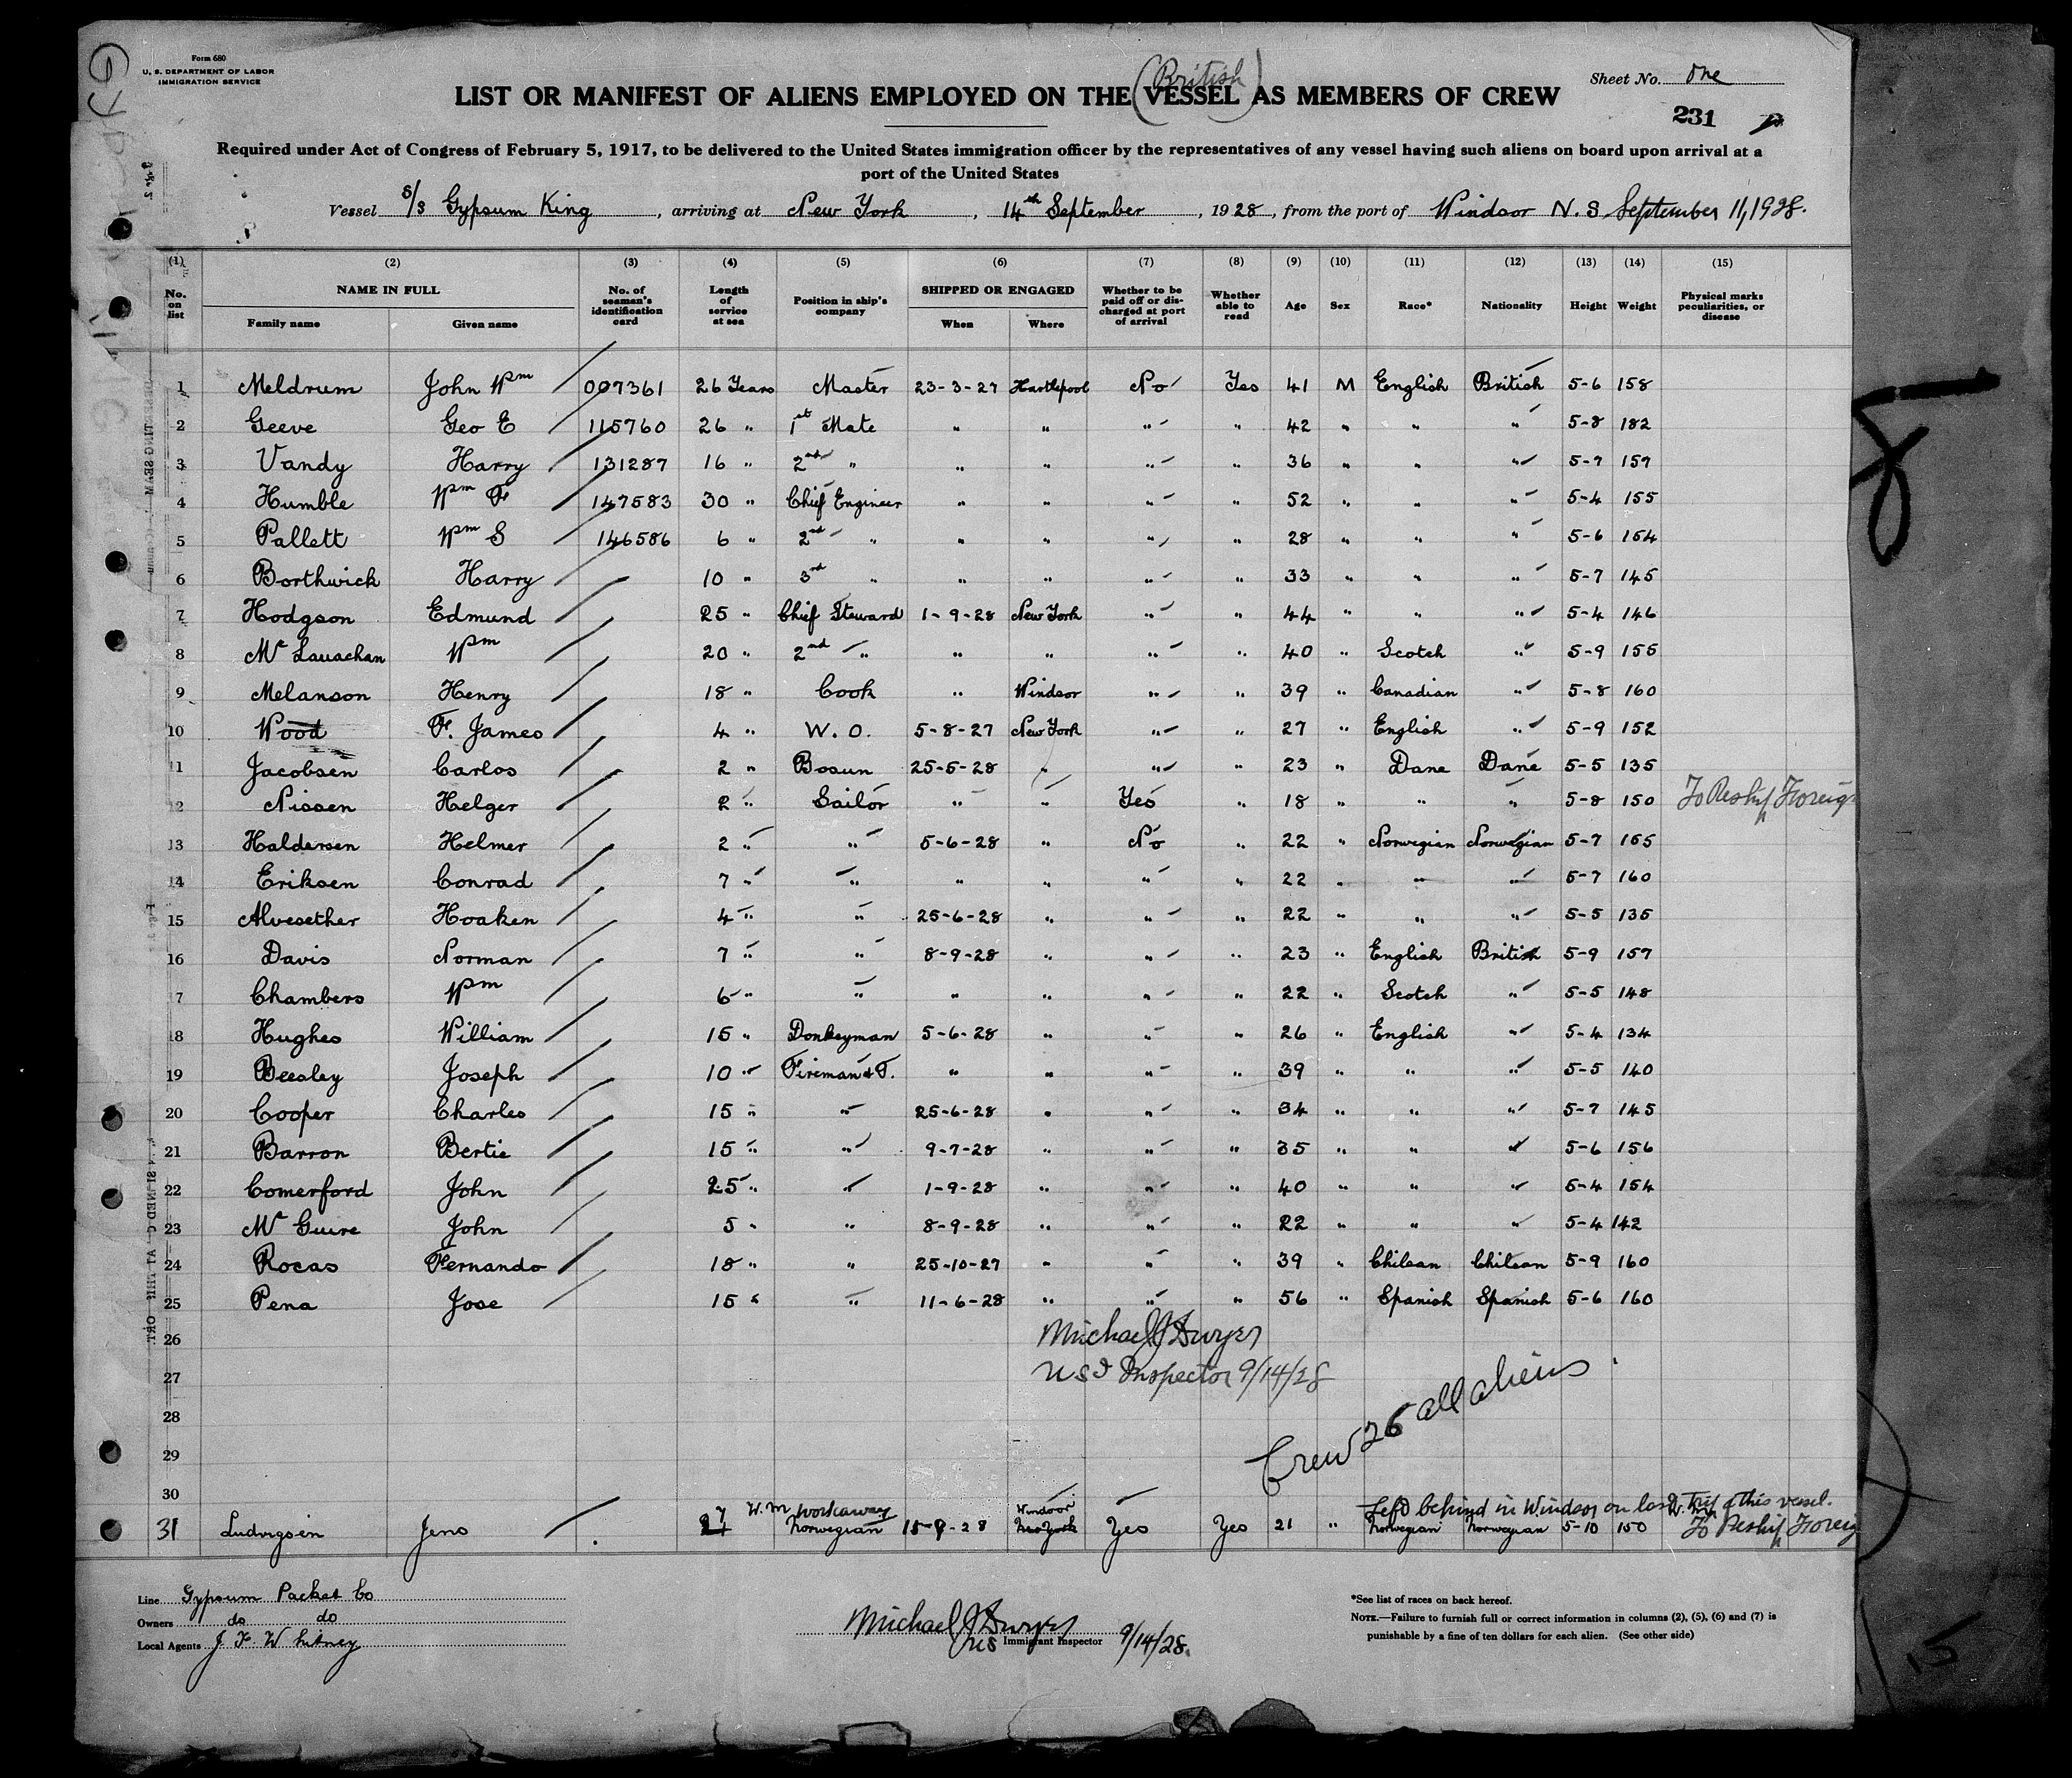 Form 680
U. S. DEPARTMENT OF LABOR
IMMIGRATION SERVICE
Sheet No. One
(British)
LIST OR MANIFEST OF ALIENS EMPLOYED ON THE VESSEL AS MEMBERS OF CREW
231
Required under Act of Congress of February 5, 1917, to be delivered to the United States immigration officer by the representatives of any vessel having such aliens on board upon arrival at a
port of the United States
Vessel S/S Gypsum King, arriving at New York, 14th September, 1928, from the port of Windsor N.S September 11, 1928.
(1) (2) (3) (4) (5) (6) (7) (8) (9) (10) (11) (12) (13) (14) (15)
No. on list NAME IN FULL Family name Given name No. of seaman's identification card Length of service at sea Position in ship's company SHIPPED OR ENGAGED When Where Whether to be paid off or discharged at port of arrival Whether able to read Age Sex Race* Nationality Height Weight Physical marks peculiarities, or disease
1 Meldrum John Wm 007361 26 Years Master 23-3-27 Hartlepool No Yes 41 M English British 5-6 158
2 Geeve Geo E 115760 26 " 1st Mate " " " " 42 " " " 5-8 182
3 Vandy Harry 131287 16 " 2nd " " " " " 36 " " " 5-7 157
4 Humble Wm F 147583 30 " Chief Engineer " " " " 52 " " " 5-4 155
5 Pallett Wm S 146586 6 " 2nd " " " " " 28 " " " 5-6 154
6 Borthwick Harry 10 " 3rd " " " " " 33 " " " 5-7 145
7 Hodgson Edmund 25 " Chief Steward 1-9-28 New York " " 44 " " " 5-4 146
8 Mc Lauachan Wm 20 " 2nd " " " " " 40 " Scotch " 5-9 155
9 Melanson Henry 18 " Cook " Windsor " " 39 " Canadian " 5-8 160
10 Wood F. James 4 " W. O. 5-8-27 New York " " 27 " English " 5-9 152
11 Jacobsen Carlos 2 " Bosun 25-5-28 " " " 23 " Dane Dane 5-5 135
12 Nissen Helger 2 " Sailor " " Yes " 18 " " " 5-8 150 To Reship Foreign
13 Haldersen Helmer 2 " " 5-6-28 " No " 22 " Norwegian Norwegian 5-7 155
14 Eriksen Conrad 7 " " " " " " 22 " " " 5-7 160
15 Alvesether Hoaken 4 " " 25-6-28 " " " 22 " " " 5-5 135
16 Davis Norman 7 " " 8-9-28 " " " 23 " English British 5-9 157
17 Chambers Wm 6 " " " " " " 22 " Scotch " 5-5 148
18 Hughes William 15 " Donkeyman 5-6-28 " " " 26 " English " 5-4 134
19 Beesley Joseph 10 " Fireman & T. " " " " 39 " " " 5-5 140
20 Cooper Charles 15 " " 25-6-28 " " " 34 " " " 5-7 145
21 Barron Bertie 15 " " 9-7-28 " " " 35 " " " 5-6 156
22 Comerford John 25 " " 1-9-28 " " " 40 " " " 5-4 154
23 Mc Guire John 5 " " 8-9-28 " " " 22 " " " 5-4 142
24 Rocas Fernando 18 " " 25-10-27 " " " 39 " Chilean Chilean 5-9 160
25 Pena Jose 15 " " 11-6-28 " " " 56 " Spanish Spanish 5-6 160
26 Michael J Dwyer
27 U S I Inspector 9/14/28
28
29 Crew 26 all aliens
30
Left behind in Windsor on last trip of this vessel.
31 Ludvigsen Jens W.M Workaway Norwegian 15-9-28 Windsor New York Yes Yes 21 " Norwegian Norwegian 5-10 150 To Reship Foreign
Line Gypsum Packet Co
Owners do do
Local Agents J F Whitney
Michael J Dwyer
US Immigrant Inspector 9/14/28.
*See list of races on back hereof.
NOTE.—Failure to furnish full or correct information in columns (2), (5), (6) and (7) is
punishable by a fine of ten dollars for each alien. (See other side)